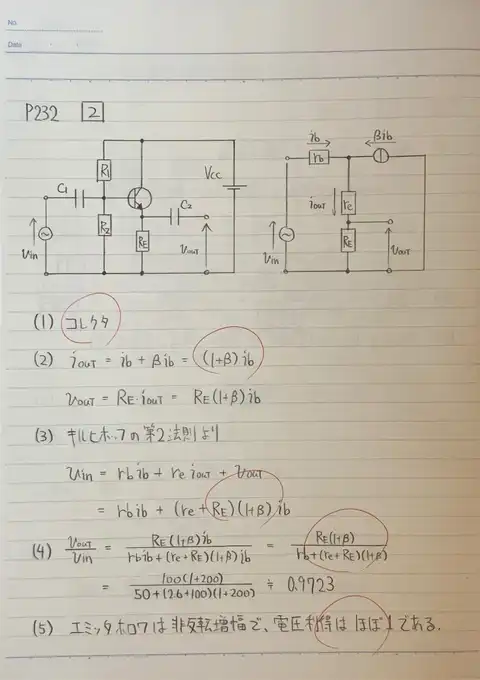 No.
Date
P232 2
R1
C1
R2
RE
C2
Vcc
vin
vout
ib
rb
βib
iout
re
RE
vin
vout
(1) コレクタ
(2) iout = ib + βib = (1+β)ib
vout = RE・iout = RE(1+β)ib
(3) キルヒホッフの第2法則より
vin = rbib + re iout + vout
= rbib + (re+RE)(1+β)ib
(4) vout/vin = RE(1+β)ib / rbib+(re+RE)(1+β)ib = RE(1+β) / rb+(re+RE)(1+β)
= 100(1+200) / 50+(2.6+100)(1+200) ≒ 0.9723
(5) エミッタホロワは非反転増幅で、電圧利得はほぼ1である.